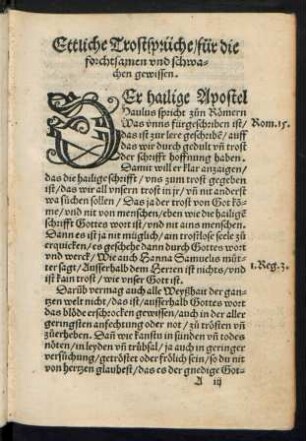 Ettliche Trostsprüche/für die
forchtsamen vnd schwa-
chen gewissen.
DEr hailige Apostel
Paulus spricht zůn Römern
Was vnns fürgeschriben ist/ Rom.15.
das ist zur lere geschribē/ auff
das wir durch gedult vn̄ trost
der schrifft hoffnung haben.
Damit will er klar anzaigen/
das die hailige schrifft / vns zum trost gegeben
ist/das wir all vnsern trost in jr/ vn̄ nit anderst
wa sůchen sollen / Das ja der trost von Got kö-
me/vnd nit von menschen/eben wie die hailige
schrifft Gottes wort ist/ vnd nit ains menschen.
Dann es ist ja nit müglich / ain trostlose seele zů
erquicken/ es geschehe dann durch Gottes wort
vnd werck/ Wie auch Hanna Samuelis můt-
ter sagt/ Ausserhalb dem Herren ist nichts/vnd 1.Reg.3.
ist kain trost/ wie vnser Gott ist.
Darüb vermag auch alle Weyßhait der gan-
tzen welt nicht/ das ist/ausserhalb Gottes wort
das blöde erschrocken gewissen/auch in der aller
geringsten anfechtung oder not/ zů trösten vn̄
zůerheben. Dañ wie kanstu in sünden vn̄ todes
nöten/in leyden vn̄ trübsal/ ja auch in geringer
versůchung/getröstet oder frölich sein/ so du nit
von hertzen glaubest/das es der gnedige Got-
A iij